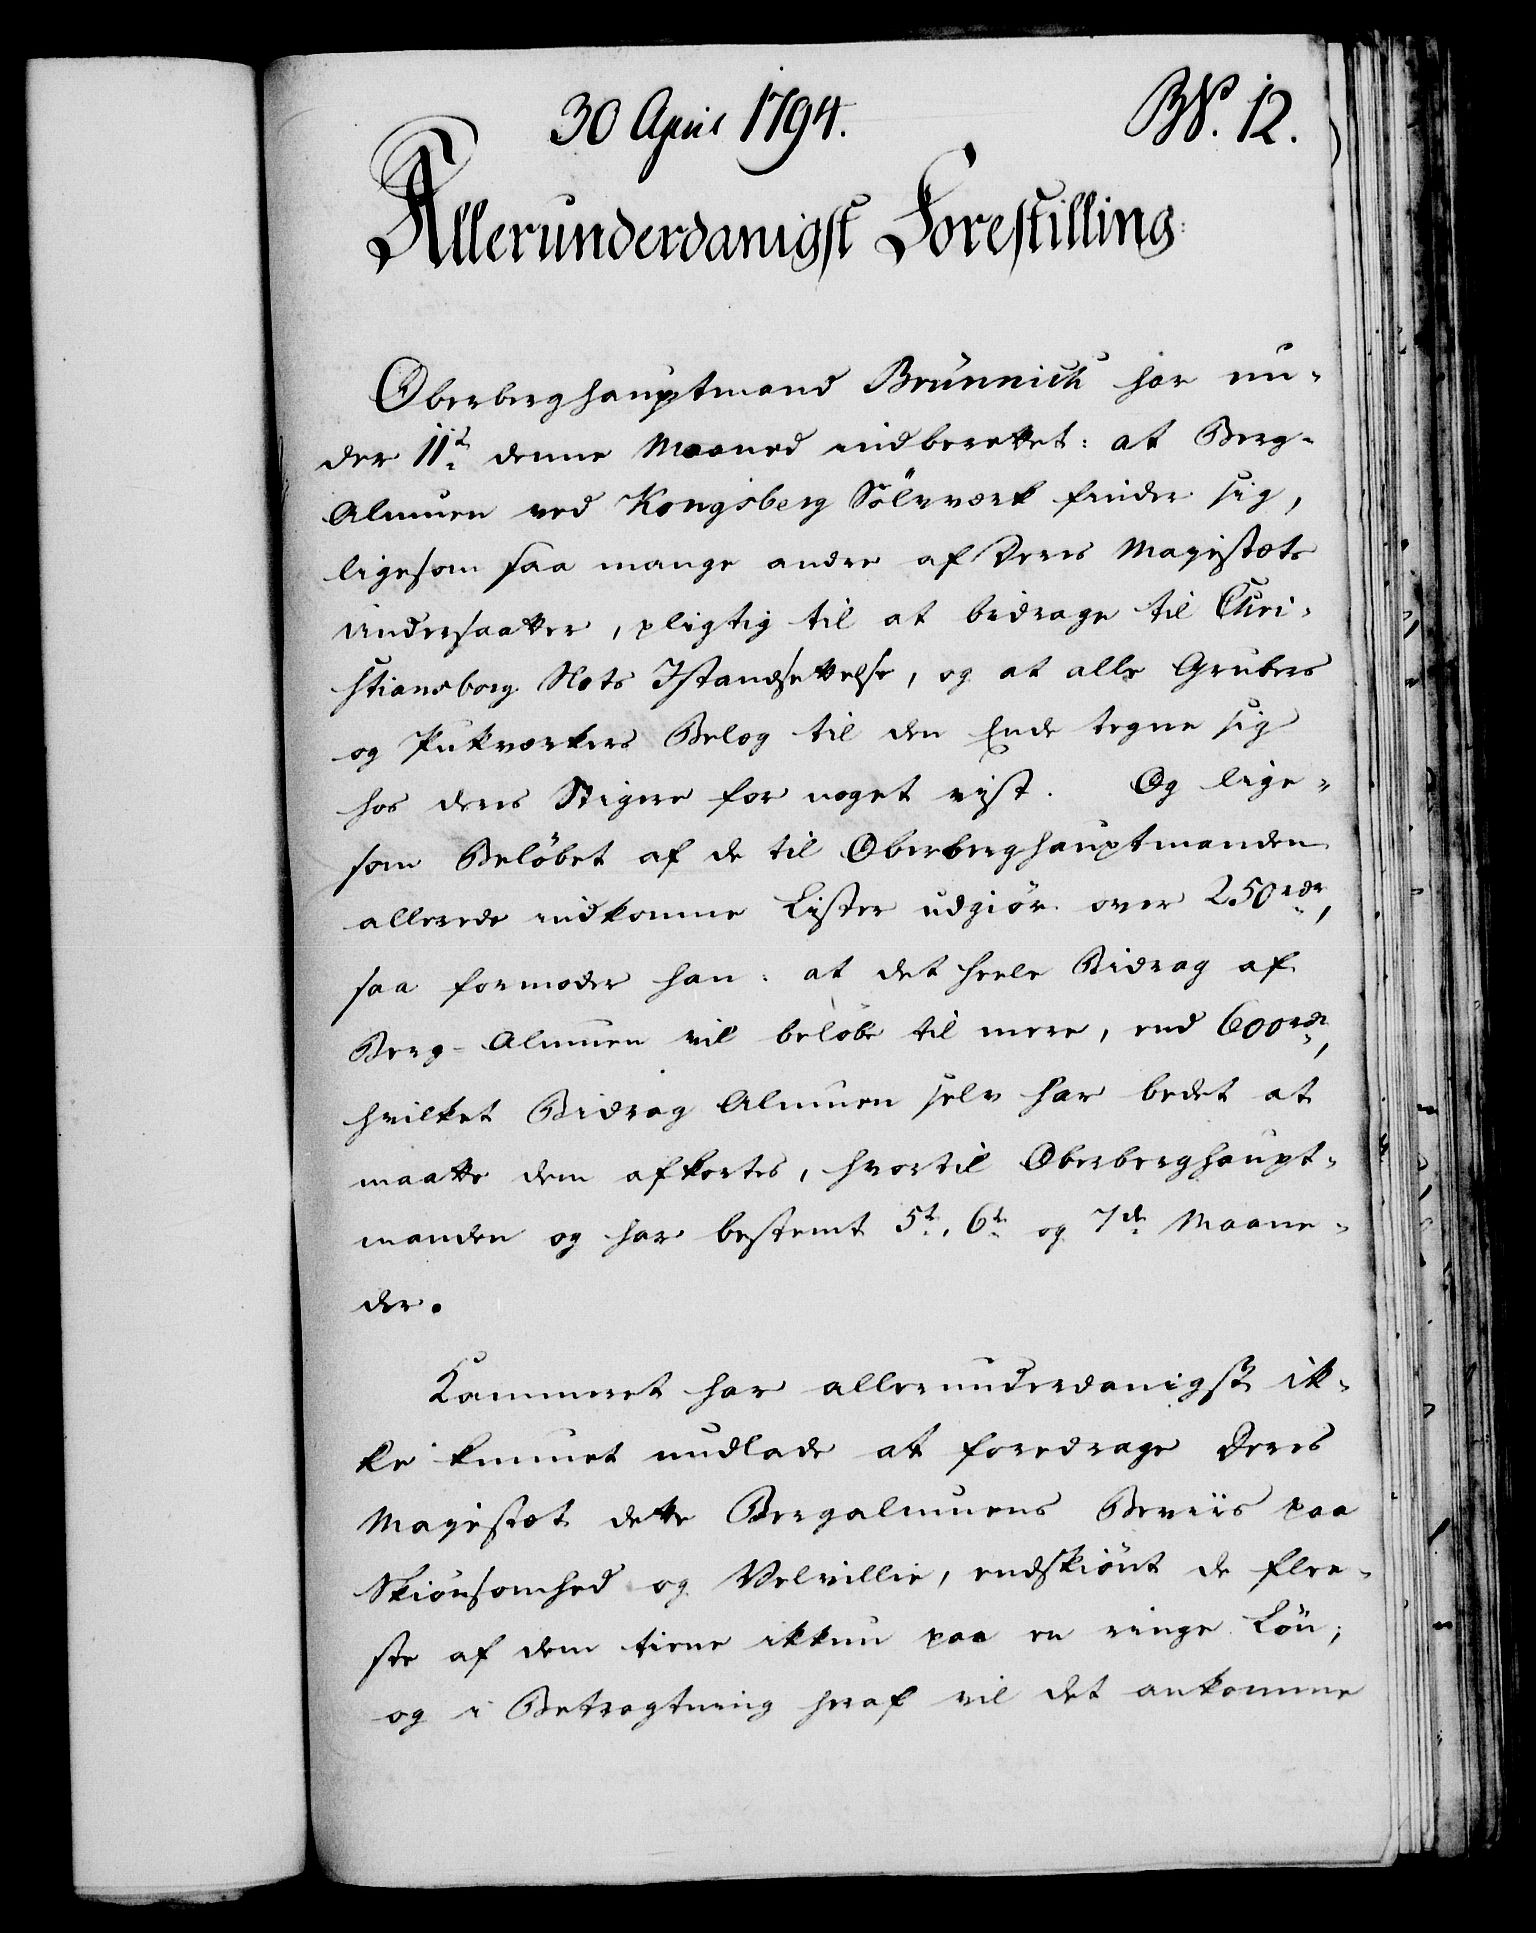 30 April 1794.
BN. 12.
Allerunderdanigst Forestilling:
Oberberghauptmand Brünnich har un-
der 11t. denne Maaned indberettet: at Berg-
Almuen ved Kongsberg Sölvværk finder sig,
ligesom saa mange andre af Deres Majestæts
Undersaatter, pligtig til at bidrage til Chri-
stiansborg Slots Istandsættelse, og at alle Grubers
og Pukværkers Belæg til den Ende tegne sig
hos deres Stigere for noget vist. Og lige-
som Belöbet af de til Oberberghauptmanden
allerede indkomne Lister udgiör over 250 rdr,
saa formoder han: at det heele Bidrag af
Berg-Almuen vil belöbe til mere, end 600 rdr,
hvilket Bidrag Almuen selv har bedet at
maatte dem afkortes, hvortil Oberberghaupt-
manden og har bestemt 5t., 6t. og 7de Maane-
der.
Kammeret har allerunderdanigst ik-
ke kunnet undlade at foredrage Deres
Majestæt dette Bergalmuens Beviis paa
Skiönsomhed og Velvillie, endskiönt de flee-
ste af dem tiene ikkun paa en ringe Lön;
og i Betragtning heraf vil det ankomme